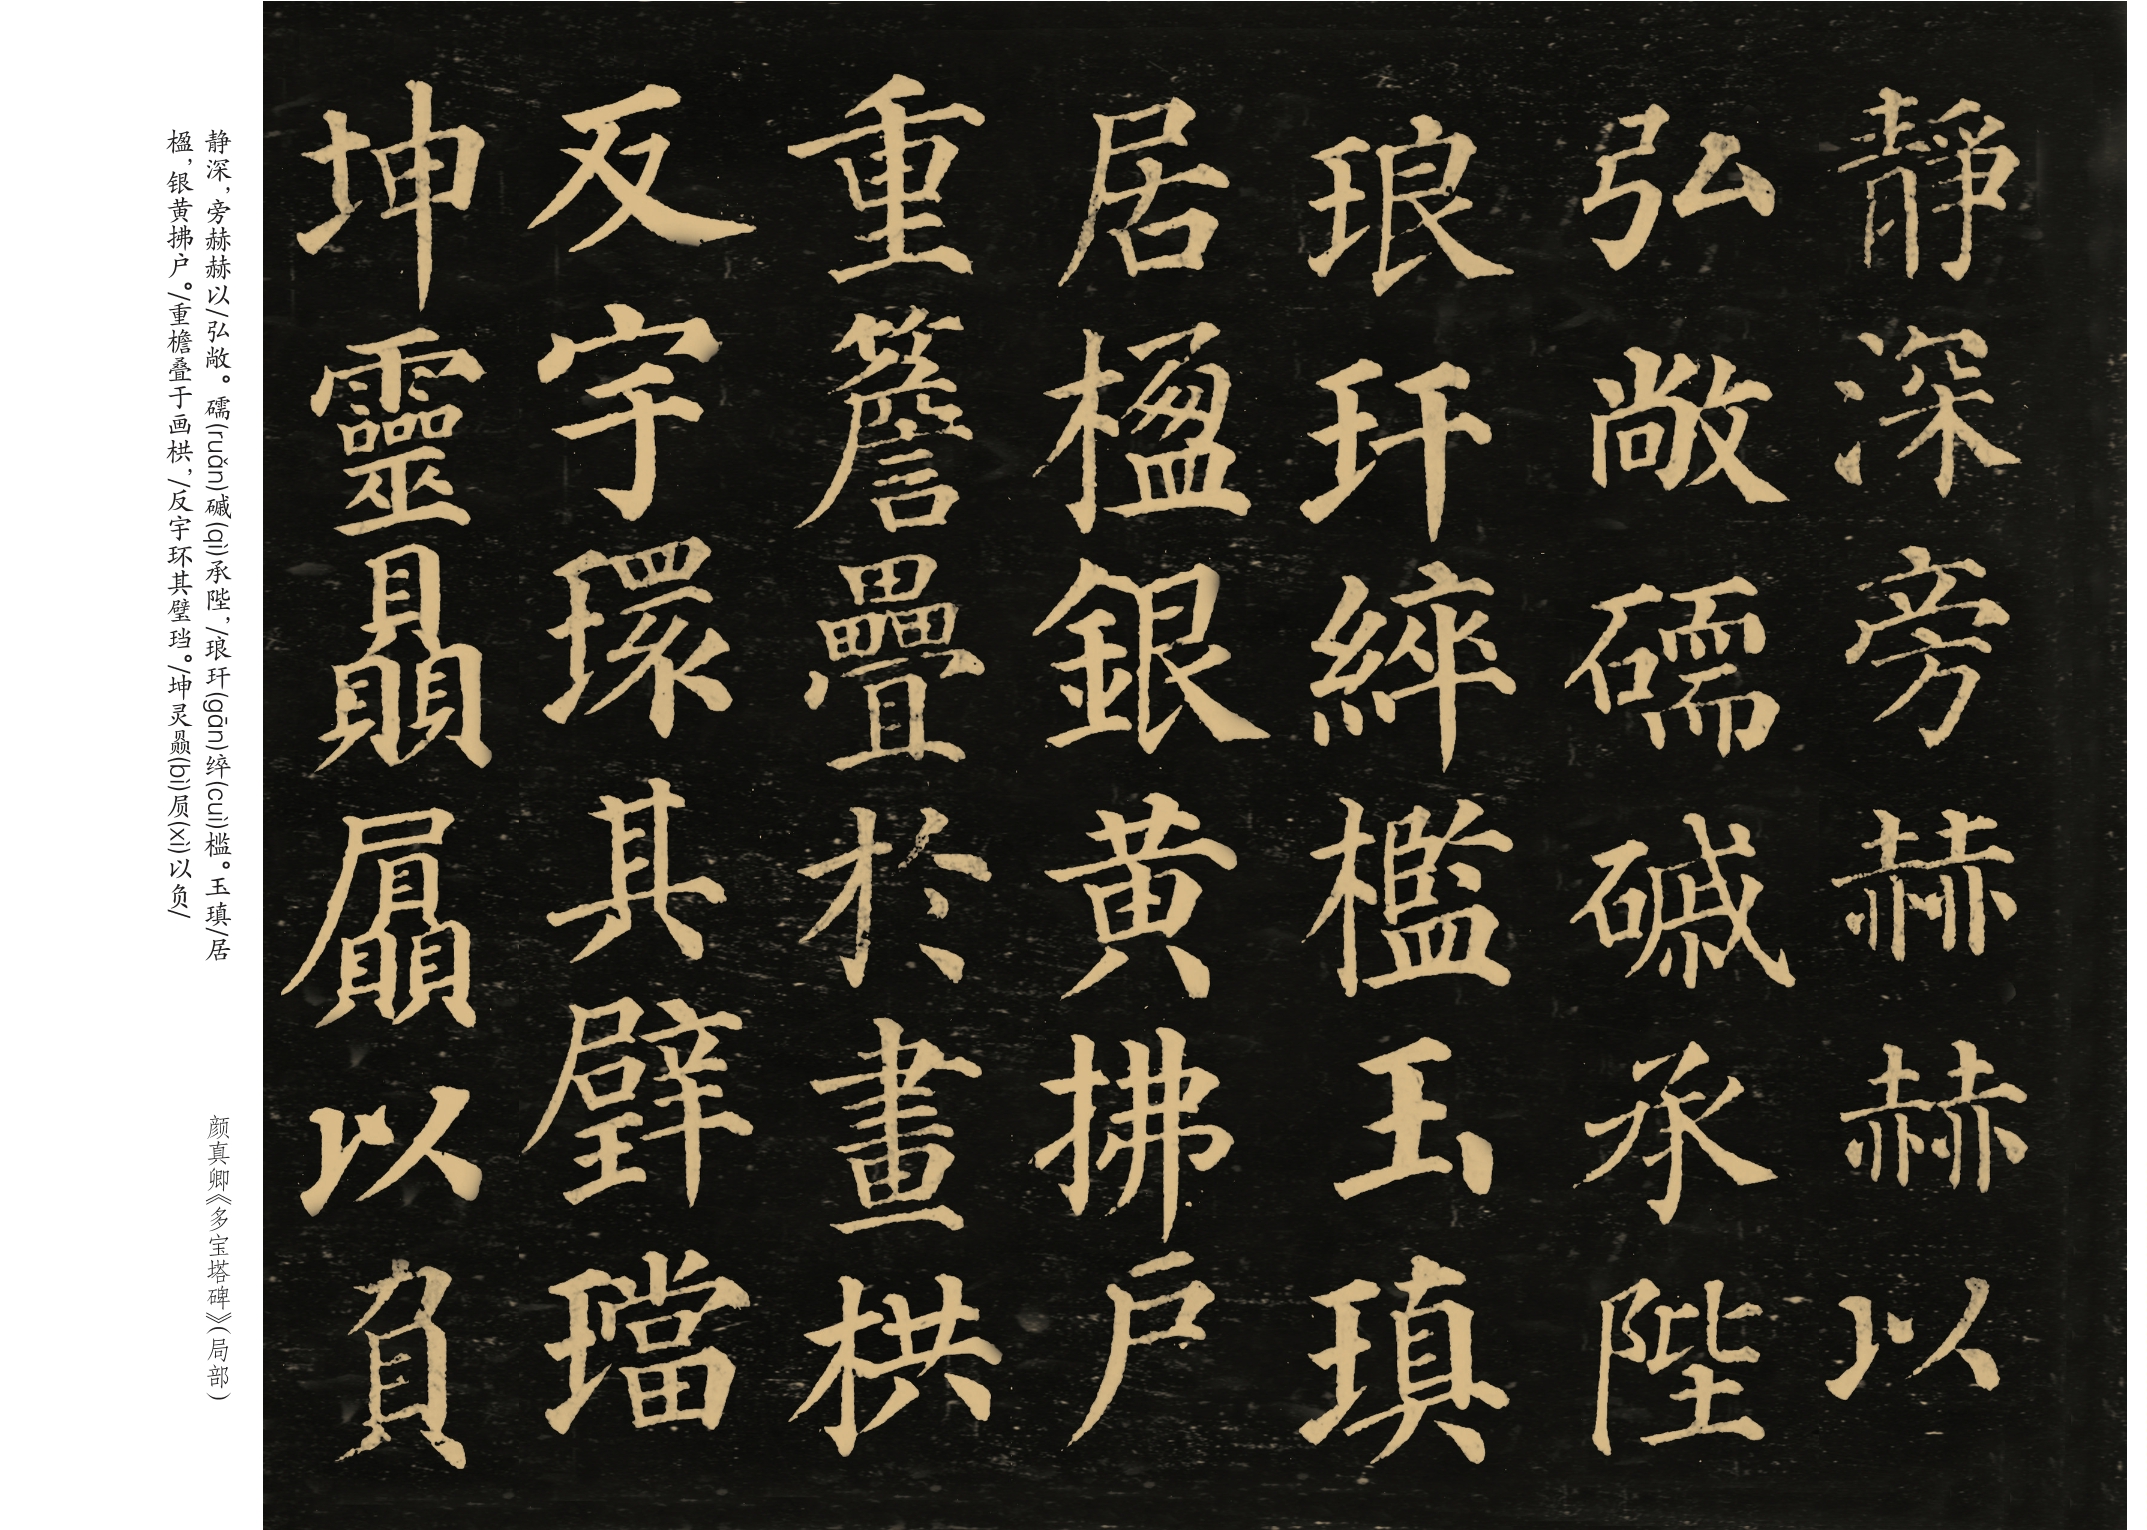 靜深旁赫赫以
弘敞礝磩承陛
琅玕綷檻玉瑱
居楹銀黄拂户
重簷疊於畫栱
反宇環其璧璫
坤靈贔屭以負
静深，旁赫赫以/弘敞。礝(ruǎn)磩(qì)承陛，/琅玕(gān)綷(cuì)槛。玉瑱/居
楹，银黄拂户。/重檐叠于画栱，/反宇环其璧珰。/坤灵赑(bì)屃(xì)以负/
颜真卿《多宝塔碑》(局部)